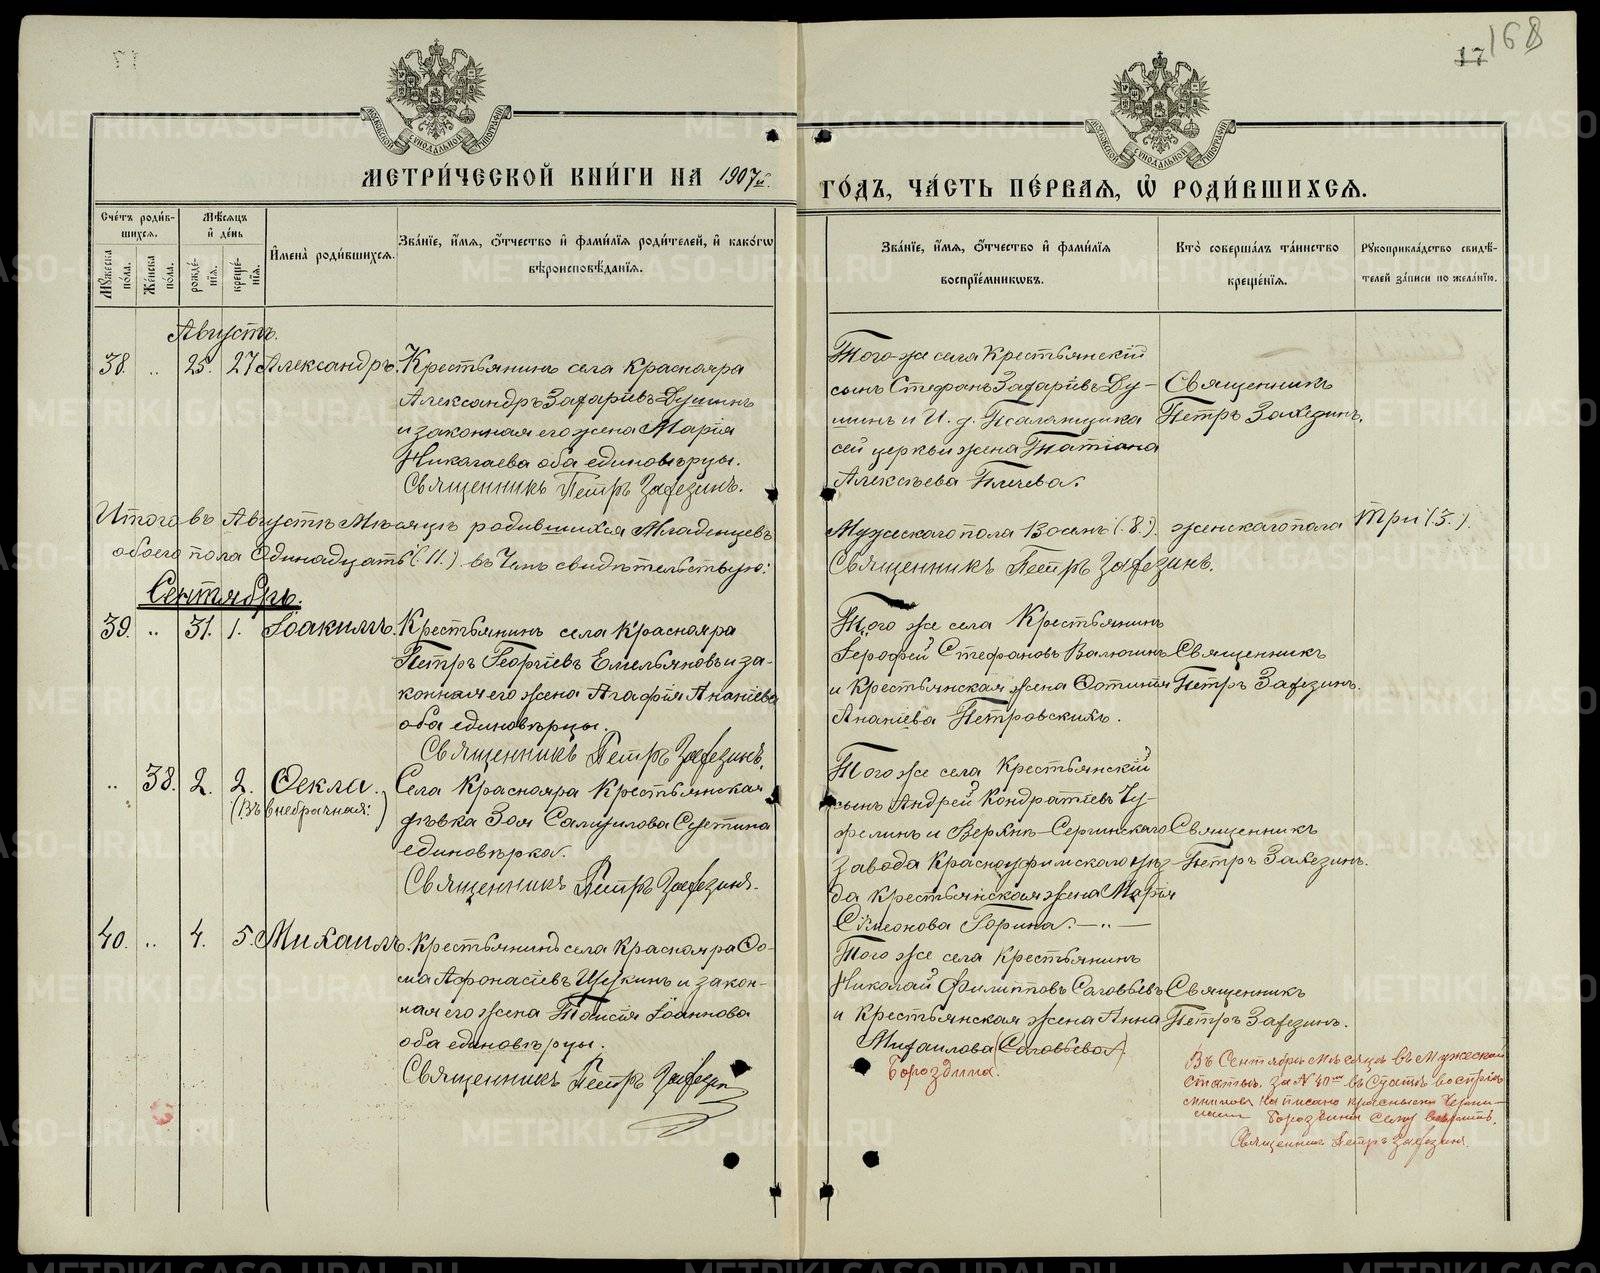 17 168
МЕТРИ́ЧЕСКОЙ КНИ́ГИ НА 1907й.
ГО́ДЪ, ЧА́СТЬ ПЕ́РВАЯ, Ѡ҆ РОДИ́ВШИХСЯ.
Счётъ роди́вшихся.
Мѣ́сяцъ и҆ де́нь
Мꙋ́жеска по́ла.
Же́нска по́ла.
рожде́нїя.
креще́нїя.
И҆мена̀ роди́вшихся.
Зва́нїе, и҆́мя, ѻ҆́тчество и҆ фами́лїя роди́телей, и҆ како́гѡ
вѣроисповѣ́данїя.
Зва́нїе, и҆́мя, ѻ҆́тчество и҆ фами́лїя
воспрїе́мникѡвъ.
Кто̀ соверша́лъ та́инство
креще́нїя.
Рꙋкоприкла́дство свидѣ́-
телей за́писи по жела́нїю.
Августъ.
38. „ 25. 27 Александръ.
Крестьянинъ села Краснояра
Александръ Захаріевъ Душинъ
и законная его жена Марія
Николаева оба единовѣрцы.
Священникъ Петръ
Того-же села Крестьянскій
сынъ Стефанъ Захаріевъ Ду-
шинъ и И. д. Псаломщика
сей церкви жена Татіана
Алексѣева
Священникъ
Петръ
Итого въ Августѣ Мѣсяцѣ родившихся Младенцевъ
обоего пола Одинадцать (:11.) въ чемъ свидѣтельствую:
Мужескаго пола Восемь (:8:). женскаго пола три (:3:).
Священникъ Петръ
Сентябрь.
39. „ 31. 1. Іоакимъ.
Крестьянинъ села Краснояра
Петръ Георгіевъ Емельяновъ и за-
конная его жена Агафія Ананіева
оба единовѣрцы.
Священникъ Петръ
Того же села Крестьянинъ
Іерофей Стефановъ
и Крестьянская жена Фотинія
Ананіева Петровскихъ.
Священникъ
Петръ
„ 38. 2. 2. Ѳекла.
(:Внебрачная:)
Села Краснояра Крестьянская
дѣвка Зоя Самуилова
единовѣрка.
Священникъ Петръ
Того же села Крестьянскій
сынъ Андрей Кондратіевъ
и Верхне-Сергинскаго
завода Красноуфимскаго уѣз-
да крестьянская жена Марія
Сімеонова Горина. — „ —
Священникъ
Петръ
40. „ 4. 5. Михаилъ.
Крестьянинъ села Краснояра Ѳо-
ма Афонасіевъ Щукинъ и закон-
ная его жена Таисія Іоаннова
оба единовѣрцы.
Священникъ Петръ
Того же села Крестьянинъ
Николай Филипповъ Соловьевъ
и Крестьянская жена Анна
Михаилова (Соловьева)
Бороздина.
Священникъ
Петръ
Въ Сентябрѣ мѣсяцѣ въ мужеской
статьѣ за № 40мъ въ статьѣ воспріе-
мниковъ написано красными черни-
лами Бороздина сему вѣрить.
Священникъ Петръ
METRIKI.GASO-URAL.RU